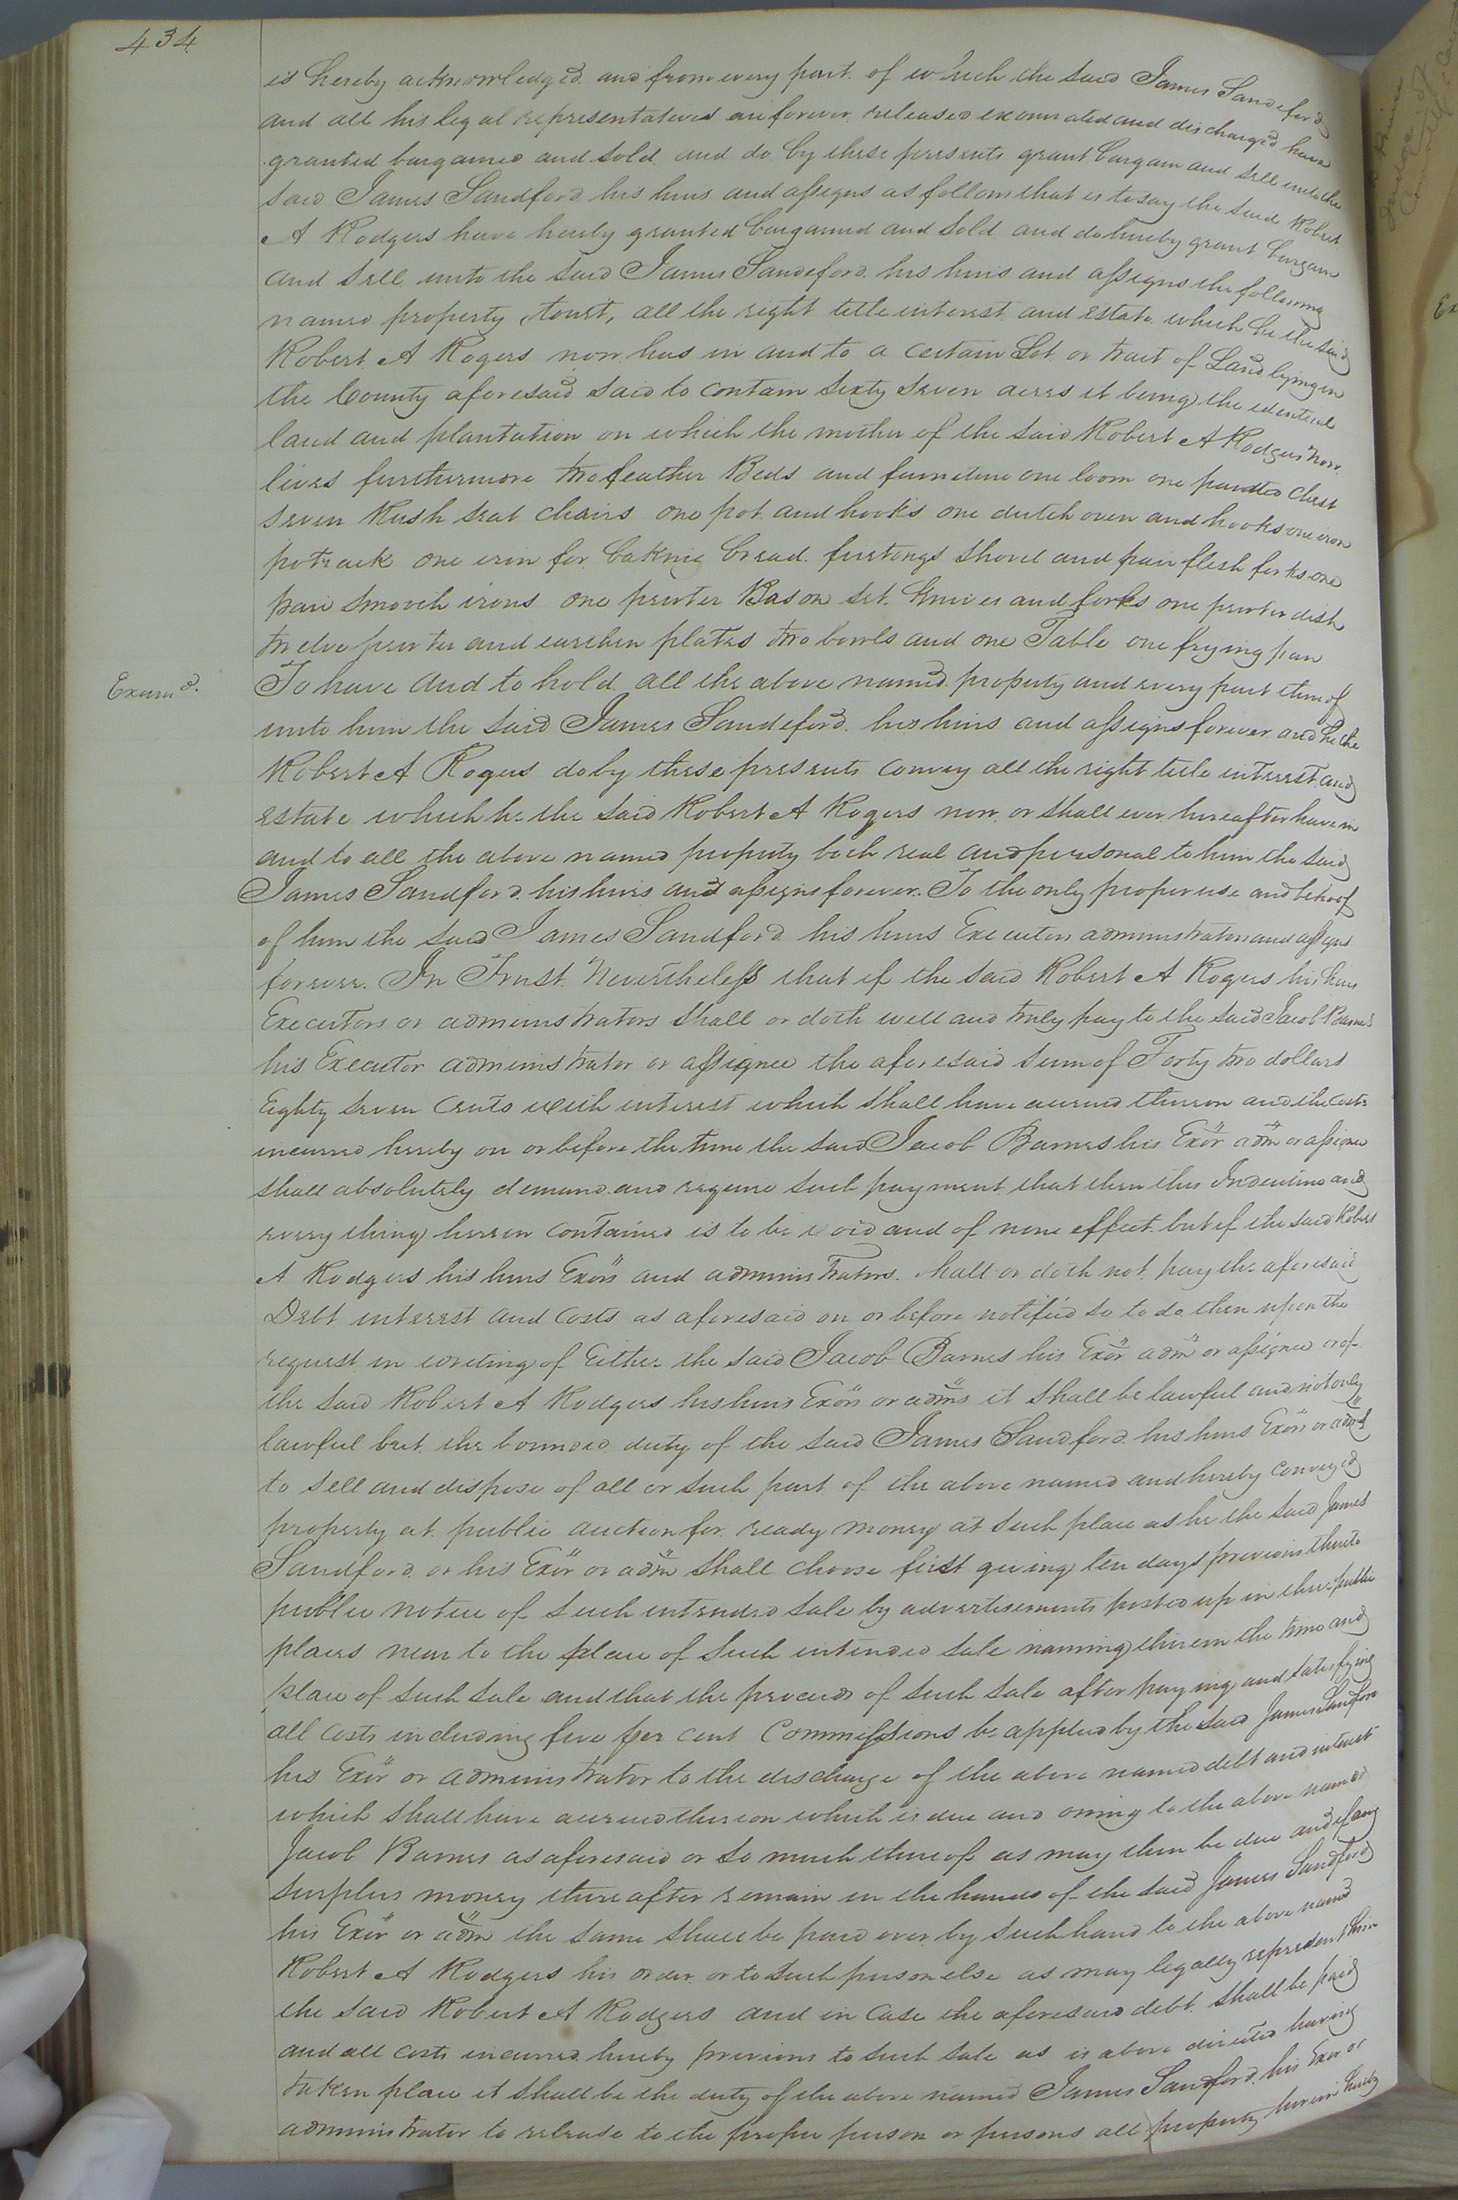 434
is hereby acknowledged and from every part of which the said James Sandeford
and all his legal representatives are forever released exonerated and discharged have
granted bargained and sold and do by these presents grant bargain and sell unto the
said James Sandford his heirs and assigns as follows that is to say the said Robert
A Rodgers have hereby granted bargained and sold and do hereby grant bargain
and sell unto the said James Sandeford his heirs and assigns the following
named property, towit, all the right title interest and estate which he the said
Robert A Rogers now has in and to a certain Lot or tract of Land lying in
the County aforesaid said to contain sixty seven acres it being the identical
land and plantation on which the mother of the said Robert A Rodgers now
lives furthermore two feather Beds and furniture one loom one painted chest
seven Rush seat chairs one pot and hooks one dutch oven and hooks one iron
potrack one iron for baking bread firetongs shovel and pair flesh forks one
pair smooth irons one pewter Bason set knives and forks one pewter dish
twelve pewter and earthen plates two bowls and one Table one frying pan
Examd. To have and to hold all the above named property and every part thereof
unto him the said James Sandeford his heirs and assigns forever and he the
Robert A Rogers do by these presents convey all the right title interest and
estate which he the said Robert A Rogers now or shall ever hereafter have in
and to all the above named property both real and personal to him the said
James Sandford his heirs and assigns forever. To the only proper use and behoof
of him the said James Sandford his heirs Executors administrators and assigns
forever. In Trust Nevertheless that if the said Robert A Rogers his heirs
Executors or administrators shall or doth well and truly pay to the said Jacob Barnes
his Executor administrator or assignee the aforesaid sum of Forty two dollars
Eighty seven Cents with interest which shall have accrued thereon and the costs
incurred hereby on or before the time the said Jacob Barnes his Exor adm or assignee
shall absolutely demand and require such payment that then this Indenture and
every thing herein contained is to be void and of none effect but if the said Robert
A Rodgers his heirs Exors and administrators shall or doth not pay the aforesaid
Debt interest and costs as aforesaid on or before notified so to do then upon the
request in writing of Either the said Jacob Barnes his Exor adm or assignee or of
the said Robert A Rodgers his heirs Exors or adms it shall be lawful and not only
lawful but the bounded duty of the said James Sandford his heirs Exors or adms
to sell and dispose of all or such part of the above named and hereby conveyed
property at public auction for ready money at such place as he the said James
Sandford or his Exor or adm shall choose first giving ten days previous thereto
public notice of such intended sale by advertisements posted up in three public
places near to the place of such intended sale naming therein the time and
place of such sale and that the proceeds of such sale after paying and satisfying
all costs including five per cent Commissions be applied by the said James Sandford
his Exor or administrator to the discharge of the above named debt and interest
which shall have accrued thereon which is due and owing to the above named
Jacob Barnes as aforesaid or so much thereof as may then be due and if any
surplus money thereafter remain in the hands of the said James Sandford
his Exor or adm the same shall be paid over by such hand to the above named
Robert A Rodgers his order or to such person else as may legally represent him
the said Robert A Rodgers and in case the aforesaid debt shall be paid
and all costs incurred hereby previous to such sale as is above directed having
taken place it shall be the duty of the above named James Sandford his Exor or
administrator to release to the proper person or persons all property herein hereby